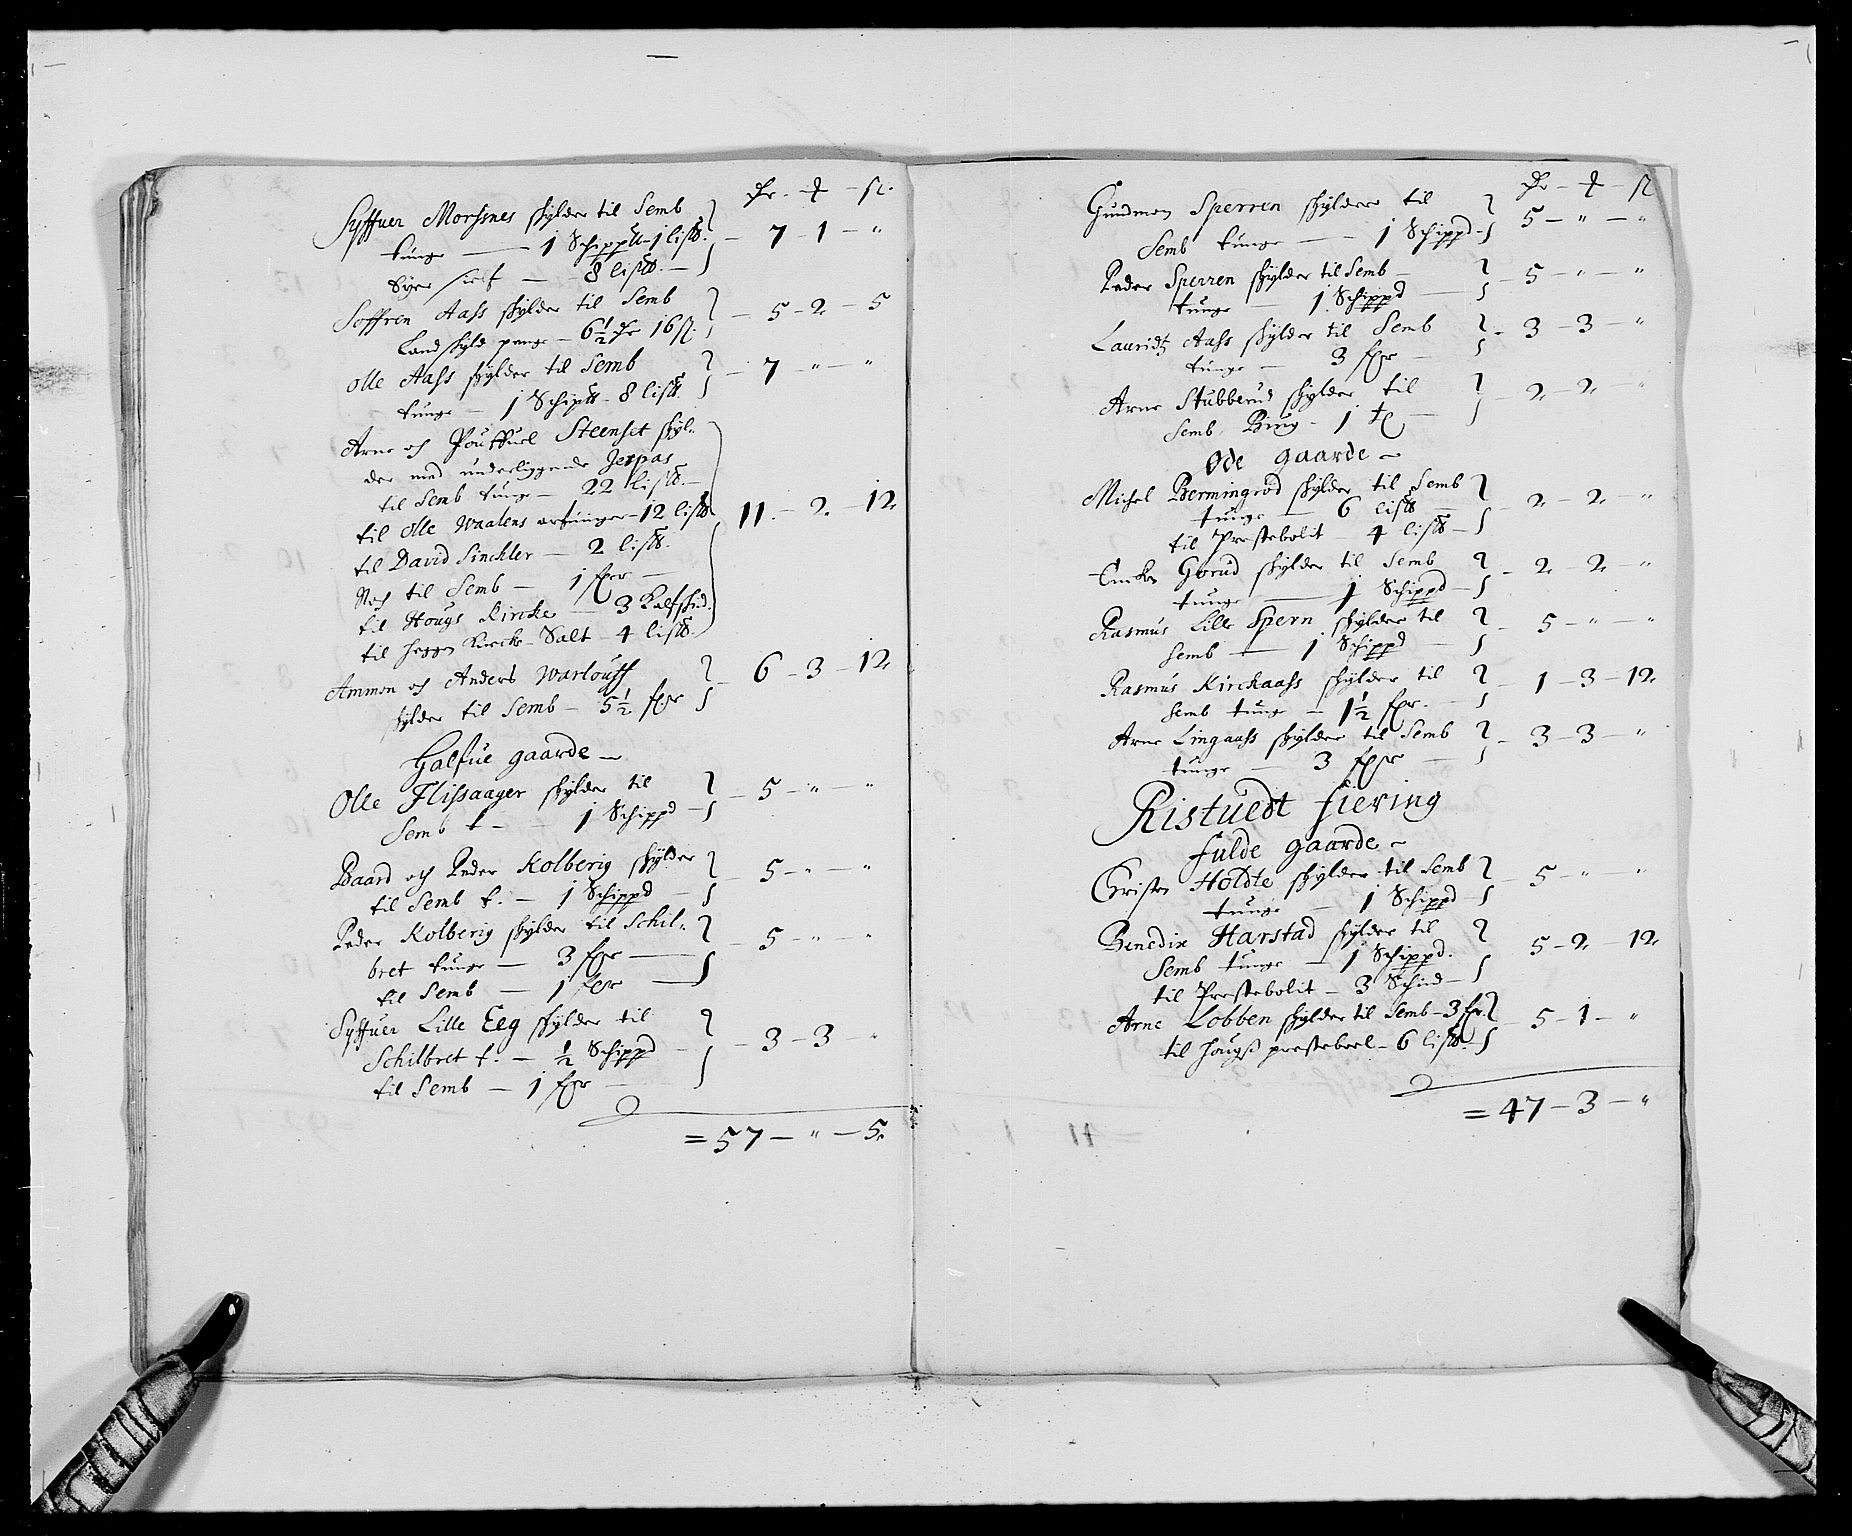 Syffuer Morsnes skylder til Semb
tunge — 1 Schippd - 1 lispd. — 7 — 1 — "
Eyer sielf — 8 lispd. —
Soffren Aass skylder til Semb — 5 — 2 — 5
Landskyld penge — 6½ 16 s.
Olle Aass skylder til Semb — 7 — " — "
tunge — 1 Schipd - 8 lispd.
Arne och Steenset skyl-
der med underliggende Jerpas
til Semb tunge — 22 lispd. —
til Olle Waalens — 12 lispd — 11 — 2 — 12
til David Sinchler — 2 lispd.
Noch til Semb — 1 fr —
til Hougs Kircke — 3 Kalfskind
til Heggen Kircke Salt — 4 lispd.
Ammon och Anders Warlouff — 6 — 3 — 12
skylder til Semb — 5½ fr
Halfue gaarde —
Olle Flissaager skylder til — 5 — " — "
Semb t. — 1 Schippd —
Baard och Peder Kolberig skylder — 5 — " — "
til Semb t. — 1 Schippd —
Peder Kolberig skylder til Schil-
bret tunge — 3 fr — 5 — " — "
til Semb — 1 fr —
Syffuer Lille Eeg skylder til
Schilbret t. — ½ Schippd — 3 — 3 — "
til Semb — 1 fr —
= 57 — " — 5
Gundmon Sperren skylder til — 5 — " — "
Semb tunge — 1 Schippd
Peder Sperren skylder til Semb — 5 — " — "
tunge — 1 Schippd —
Lauridtz Aass skylder til Semb — 3 — 3 — "
tunge — 3 fr —
Arne Stubberud skylder til — 2 — 2 — "
Semb. Biug — 1 —
Øde gaarde —
Michel Bermingrod skylder til Semb
tunge — 6 lispd — 2 — 2 — "
til Prestebolit — 4 lispd —
Gorud skylder til Semb — 2 — 2 — "
tunge — 1 Schippd —
Rasmus Lille Spern skylder til — 5 — " — "
Semb — 1 Schippd —
Rasmus Kirckaass skylder til — 1 — 3 — 12
Semb tunge — 1½ fr. —
Arne Lingaass skylder til Semb — 3 — 3 — "
tunge — 3 fr —
Ristuedt fiering
fulde gaarde —
Christen Holdte skylder til Semb — 5 — " — "
tunge — 1 Schippd —
Benedix Harstad skylder til
Semb tunge — 1 Schippd. — 5 — 2 — 12
til Prestebolit — 3 Schind —
Arne Lobben skylder til Semb — 3 fr — 5 — 1 — "
til Hougs presteboel — 6 lispd.
= 47 — 3 — "